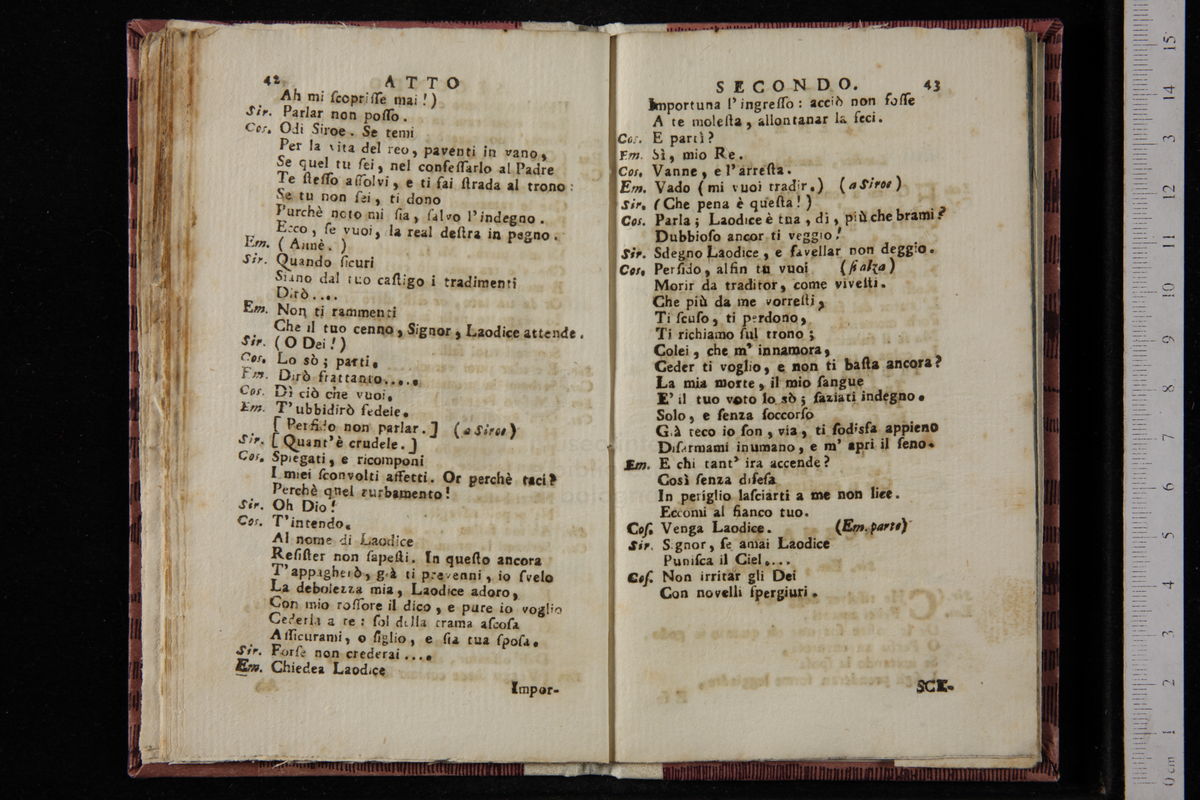 42 ATTO
Ah mi ſcopriſſe mai!)
Sir. Parlar non poſſo.
Cos. Odi Siroe. Se temi
Per la vita del reo, paventi in vano,
Se quel tu ſei, nel confeſſarlo al Padre
Te ſteſſo aſſolvi, e ti fai ſtrada al trono:
Se tu non ſei, ti dono
Purchè noto mi ſia, ſalvo l'indegno.
Ecco, ſe vuoi, la real deſtra in pegno.
Em. (Aimè.)
Sir. Quando ſicuri
Siano dal tuo caſtigo i tradimenti
Dirò....
Em. Non ti rammenti
Che il tuo cenno, Signor, Laodice attende.
Sir. (O Dei!)
Cos. Lo sò; parti.
Em. Dirò frattanto.....
Cos. Dì ciò che vuoi.
Em. T'ubbidirò fedele.
[Perfido non parlar.] (a Siroe)
Sir. [Quant'è crudele.]
Cos. Spiegati, e ricomponi
I miei ſconvolti affetti. Or perchè taci?
Perchè quel turbamento!
Sir. Oh Dio!
Cos. T'intendo.
Al nome di Laodice
Reſiſter non ſapeſti. In queſto ancora
T'appagherò, già ti prevenni, io ſvelo
La debolezza mia, Laodice adoro,
Con mio roſſore il dico, e pure io voglio
Cederla a te: ſol della trama aſcoſa
Aſſicurami, o figlio, e ſia tua ſpoſa.
Sir. Forſe non crederai....
Em. Chiedea Laodice
Impor-
SECONDO. 43
Importuna l'ingreſſo: acciò non foſſe
A te moleſta, allontanar la feci.
Cos. E partì?
Em. Sì, mio Re.
Cos. Vanne, e l'arreſta.
Em. Vado (mi vuoi tradir.) (a Siroe)
Sir. (Che pena è queſta!)
Cos. Parla; Laodice è tua, di, più che brami?
Dubbioſo ancor ti veggio!
Sir. Sdegno Laodice, e favellar non deggio.
Cos. Perfido, alfin tu vuoi (ſi alza)
Morir da traditor, come viveſti.
Che più da me vorreſti,
Ti ſcuſo, ti perdono,
Ti richiamo ſul trono;
Colei, che m'innamora,
Ceder ti voglio, e non ti baſta ancora?
La mia morte, il mio ſangue
E' il tuo voto lo sò; ſaziati indegno.
Solo, e ſenza ſoccorſo
Già teco io ſon, via, ti ſodisfa appieno
Diſarmami inumano, e m'apri il ſeno.
Em. E chi tant' ira accende?
Così ſenza difeſa
In periglio laſciarti a me non lice.
Eccomi al fianco tuo.
Coſ. Venga Laodice. (Em. parte)
Sir. Signor, ſe amai Laodice
Puniſca il Ciel....
Coſ. Non irritar gli Dei
Con novelli ſpergiuri.
SCE-